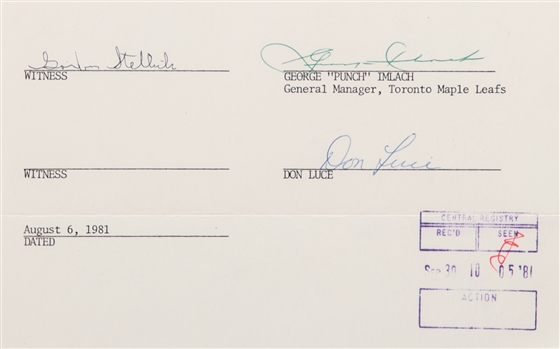 Gordon Stellick
WITNESS
GEORGE "PUNCH" IMLACH
General Manager, Toronto Maple Leafs
Don Luce
WITNESS
DON LUCE
August 6, 1981
DATED
CENTRAL REGISTRY
REC'D SEEN
SEP 30 10 05 '81
ACTION